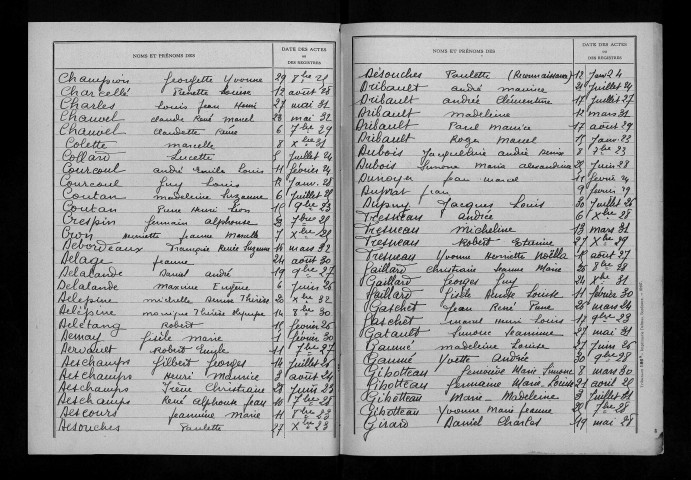 NOMS ET PRÉNOMS DES
DATE DES ACTES
OU
DES REGISTRES
Champion Georgette Yvonne 29 8bre 25
Charcellé Pierrette Louise 12 août 28
Charles Louis Jean Henri 27 mai 31
Chauvel Claude René Marcel 28 mai 32
Chauvel Claudette Renée 6 7bre 29
Colette Marcelle 8 Xbre 31
Collard Lucette 5 Juillet 24
Courcoul André Emile Louis 11 février 24
Courcoul Guy Louis 12 Janv. 28
Coutan Madeleine Suzanne 6 Juillet 28
Coutan Pierre Henri Léon 10 9bre 23
Crespin Germain Alphonse 23 7bre 28
Cron Henriette Jeanne Marcelle 7 Xbre 28
Debordeaux Françoise Renée Suzanne 16 mars 32
Delage Jeanne 24 août 30
Delalande Daniel André 19 9bre 27
Delalande Maxime Eugène 6 Juin 26
Delépine Michelle Denise Thérèse 2 Xbre 32
Delépine Monique Thérèse 14 7bre 30
Deletang Robert 11 février 26
Demay Gisèle Marie 1 février 30
Robert Emile 11 7bre 27
Deschamps Gilbert Georges 14 Juillet 25
Deschamps Henri Maurice 3 août 24
Deschamps Irène Christiane 29 Juin 23
Deschamps René Alphonse Jean 10 7bre 28
Descours Jeannine Marie 11 7bre 23
Desouches Paulette 27 Xbre 23
NOMS ET PRÉNOMS DES
DATE DES ACTES
OU
DES REGISTRES
Désouches Paulette (Reconnaissance) 12 Janv 24
Dribault André Maurice 20 Juillet 24
Dribault Andrée Clémentine 17 Juillet 27
Dribault Madeleine 12 mars 31
Dribault Paul Maurice 17 août 29
Dribault Roger Marcel 15 Janv. 23
Dubois Jacqueline Andrée Denise 8 7bre 23
Dubois Simone Marie Alexandrine 22 Juin 28
Dunoyer Jean Marcel 15 février 24
Duprat Jean 9 février 29
Dupuy Jacques Louis 30 Juillet 26
Fresneau Andrée 6 Xbre 28
Fresneau Micheline 13 mars 31
Fresneau Robert 27 Xbre 29
Fresneau Yvonne Henriette Noëlla 18 août 27
Gaillard Christiane Jeanne Marie 25 8bre 28
Gaillard Georges Guy 24 Xbre 31
Gaillard Gisèle Andrée Louise 11 février 30
Gaschet Jean René 26 mars 24
Gaschet Louis 17 9bre 23
Gatault Simone Jeannine 27 mai 31
Gaumé Madeleine Louise 27 Juin 26
Gaumé Yvette Andrée 30 9bre 28
Giboteau Geneviève Marie Suzanne 8 mars 30
Giboteau Germaine Marie Louise 21 août 28
Giboteau Marie Madeleine 3 Juillet 31
Giboteau Yvonne Marie Jeanne 20 7bre 28
Girard Daniel Charles 19 mai 28